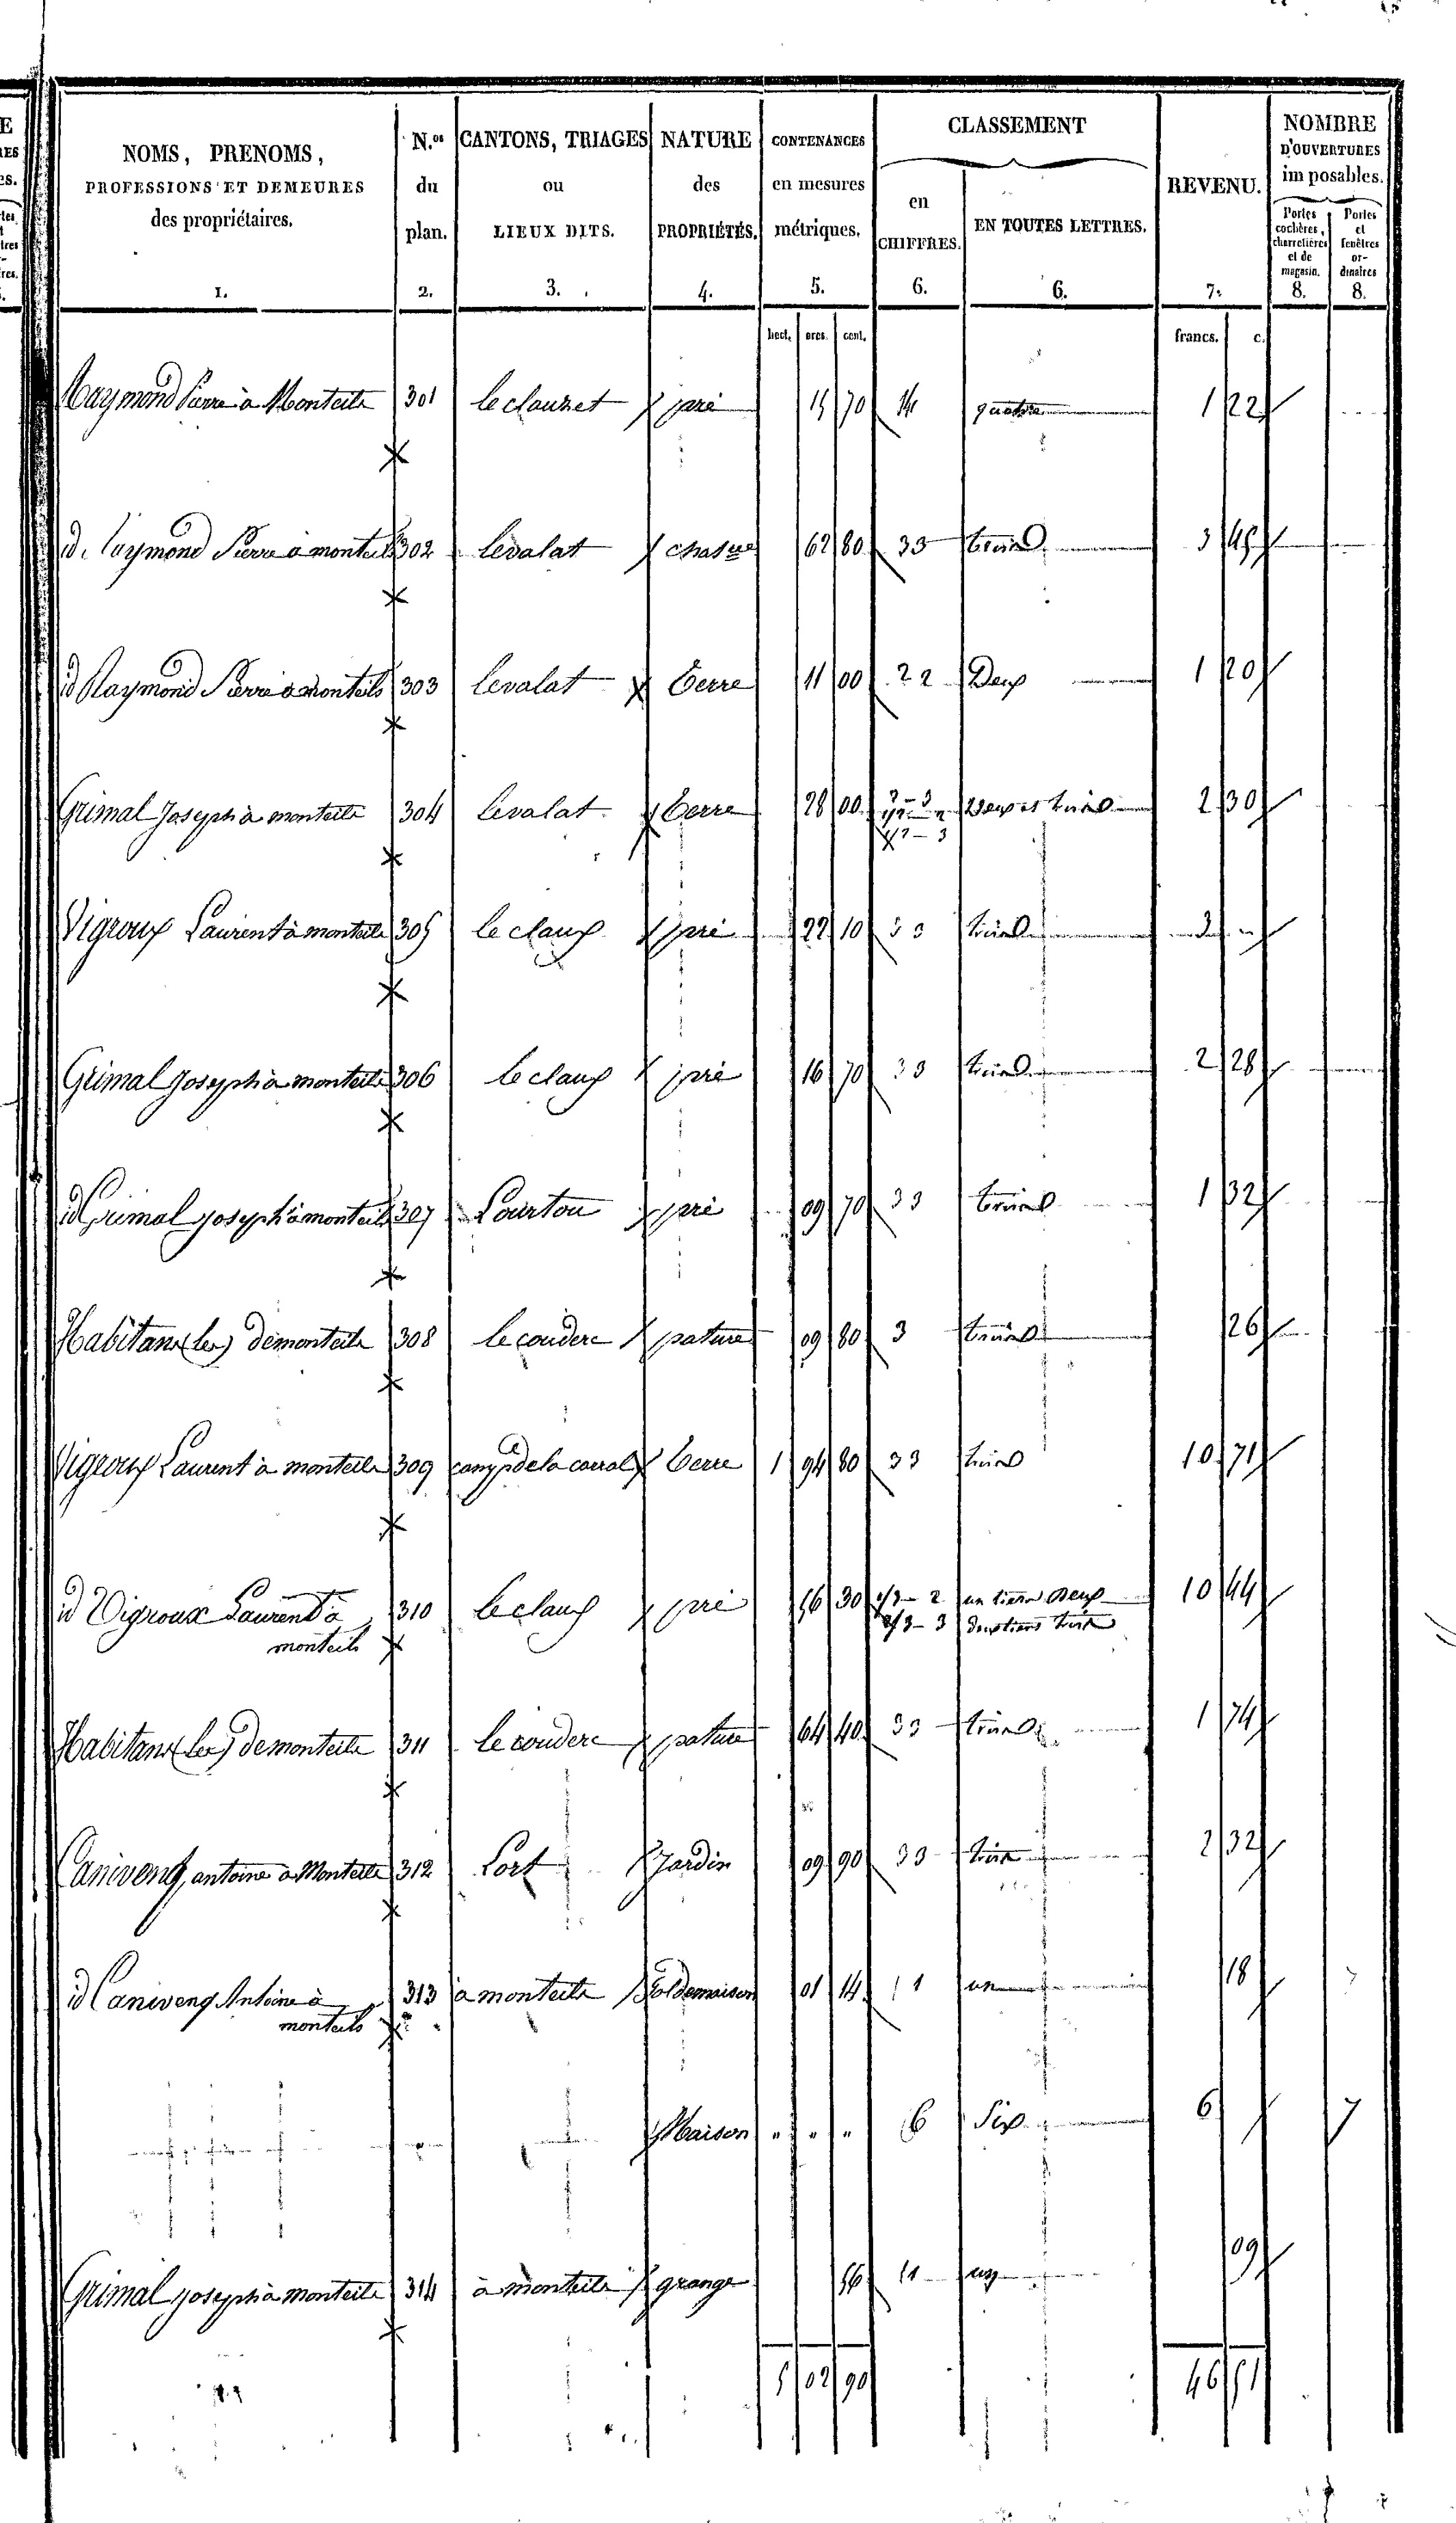 NOMS, PRENOMS, PROFESSIONS ET DEMEURES des propriétaires. N.os du plan. CANTONS, TRIAGES ou LIEUX DITS. NATURE des PROPRIÉTÉS. CONTENANCES en mesures métriques. CLASSEMENT en CHIFFRES. EN TOUTES LETTRES. REVENU. NOMBRE D'OUVERTURES imposables. Portes cochères, charretières et de magasin. Portes et fenêtres or- dinaires
1. 2. 3. 4. 5. 6. 6. 7. 8. 8.
hect. ares. cent. francs. c.
Raymond Pierre à Monteils 301 le clauzet pré 15 70 4 quatre 1 22
id. Raymond Pierre à monteils 302 levalat 62 80 33 trois 3 45
id Raymond Pierre à monteils 303 levalat terre 11 00 22 Deux 1 20
Grimal Joseph à monteils 304 levalat terre 28 00 2-3 Deux et trois 2 30
1/2-2
1/2-3
Vigroux Laurent à monteils 305 le claux pré 22 10 33 trois 3 "
Grimal Joseph à monteils 306 le claux pré 16 70 33 trois 2 28
id Grimal Joseph à monteils 307 Lourtou pré 09 70 33 trois 1 32
Habitans (les) de monteils 308 le couderc pature 09 80 3 trois 26
Vigroux Laurent à monteils 309 camp de la carral terre 1 94 80 33 trois 10 71
id Vigroux Laurent à 310 le claux pré 56 30 1/3-2 un tiers Deux 10 44
monteils 2/3-3 deux tiers trois
Habitans (les) de monteils 311 le couderc pature 64 40 33 trois 1 74
Canivenq antoine à Monteils 312 Lort Jardin 09 90 33 trois 2 32
id Canivenq Antoine à 313 à monteils Sol de maison 01 14 11 un 18
monteils
Maison " " " 6 Six 6 7
Grimal Joseph à monteils 314 à monteils grange 56 11 un 09
5 02 90 46 51